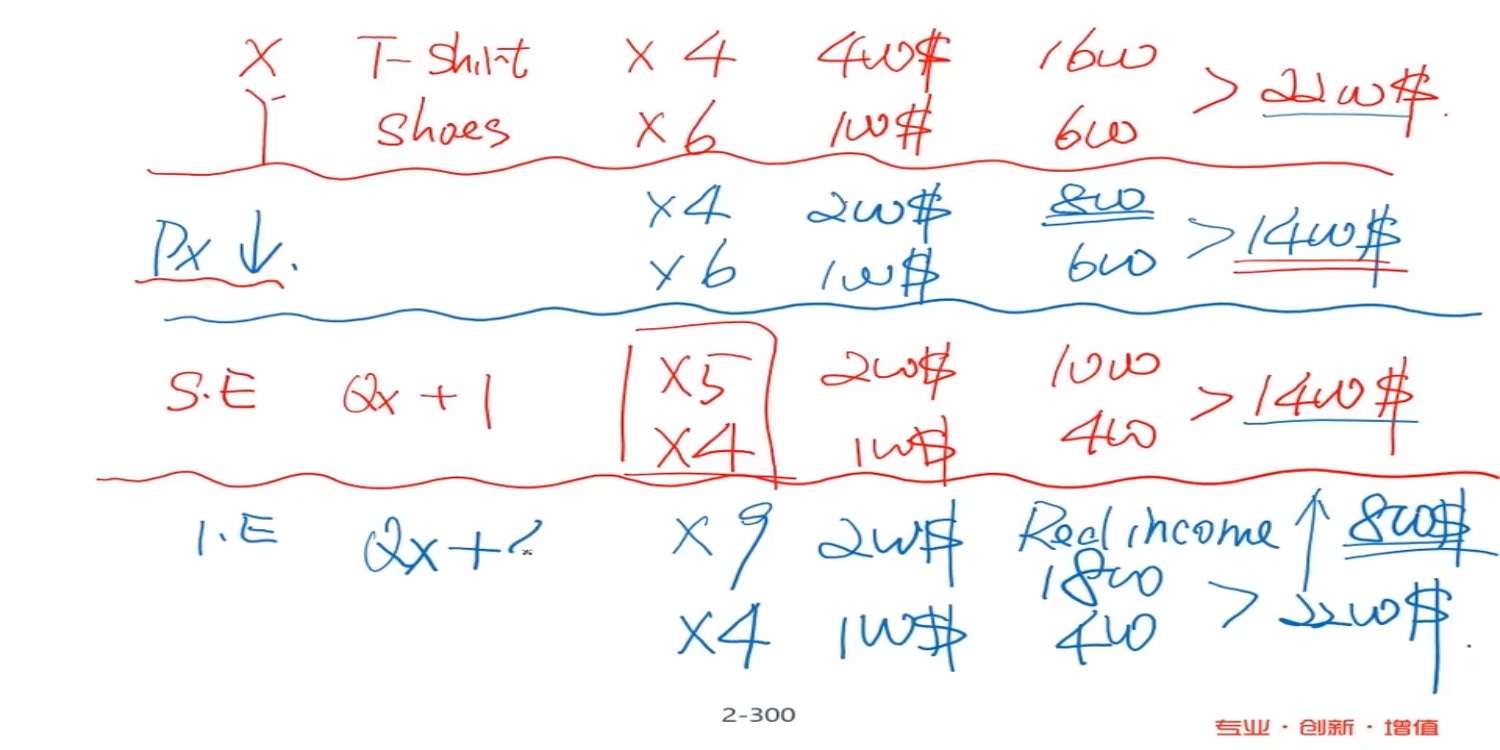 X T-Shirt x 4 400$ 1600
Y Shoes x 6 100$ 600 > 2200$.
Px ↓. x4 200$ 800
x6 100$ 600 > 1400$
S.E Qx + 1 x5 200$ 1000
x4 100$ 400 > 1400$
I.E Qx + x 9 200$ Real income ↑ 800$
1800
x4 100$ 400 > 2200$.
2-300
专业·创新·增值